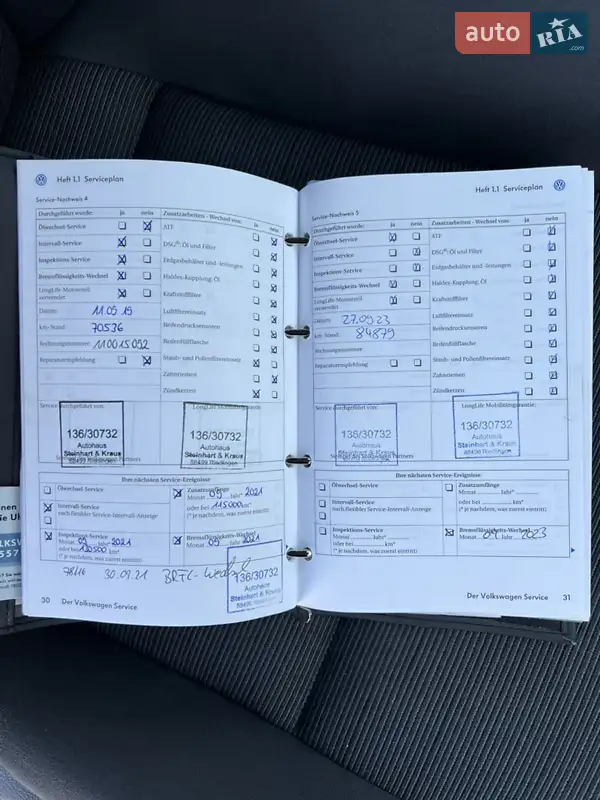 auto RIA.com
Heft 1.1 Serviceplan
Service-Nachweis 4
Durchgeführt wurde: ja nein Zusatzarbeiten - Wechsel von: ja nein
Ölwechsel-Service ATF
Intervall-Service DSG®: Öl und Filter
Inspektions Service Erdgasbehälter und -leitungen
Bremsflüssigkeits-Wechsel Haldex-Kupplung, Öl
LongLife Motorenöl verwendet Kraftstofffilter
Datum: 11.09.19 Luftfiltereinsatz
km-Stand: 70576 Reifendrucksensoren
Rechnungsnummer: 110015092 Reifenfüllflasche
Reparaturempfehlung Staub- und Pollenfiltereinsatz
Zahnriemen
Zündkerzen
Service durchgeführt von: LongLife Mobilitätsgarantie:
136/30732 136/30732
Autohaus Autohaus
Steinhart & Kraus Steinhart & Kraus
88499 Riedlingen 88499 Riedlingen
Ihre nächsten Service-Ereignisse:
Ölwechsel-Service Zusatzumfänge
Monat 09 Jahr* 2021
Intervall-Service oder bei 115000 km*
nach flexibler Service-Intervall-Anzeige (* je nachdem, was zuerst eintritt)
Inspektions-Service Bremsflüssigkeits-Wechsel
Monat 09 Jahr* 2021 Monat 09 Jahr 2021
oder bei 130500 km*
(* je nachdem, was zuerst eintritt)
30.09.21
136/30732
Autohaus
Steinhart & Kraus
88499 Riedlingen
30 Der Volkswagen Service
Heft 1.1 Serviceplan
Service-Nachweis 5
Durchgeführt wurde: ja nein Zusatzarbeiten - Wechsel von: ja nein
Ölwechsel-Service ATF
Intervall-Service DSG®: Öl und Filter
Inspektions-Service Erdgasbehälter und -leitungen
Bremsflüssigkeits-Wechsel Haldex-Kupplung, Öl
LongLife Motorenöl verwendet Kraftstofffilter
Datum: 27.09.23 Luftfiltereinsatz
km-Stand: 84879 Reifendrucksensoren
Rechnungsnummer: Reifenfüllflasche
Reparaturempfehlung Staub- und Pollenfiltereinsatz
Zahnriemen
Zündkerzen
Service durchgeführt von: LongLife Mobilitätsgarantie:
136/30732 136/30732
Autohaus Autohaus
Steinhart & Kraus Steinhart & Kraus
88499 Riedlingen
Ihre nächsten Service-Ereignisse:
Ölwechsel-Service Zusatzumfänge
Monat Jahr*
Intervall-Service oder bei km*
nach flexibler Service-Intervall-Anzeige (* je nachdem, was zuerst eintritt)
Inspektions-Service Bremsflüssigkeits-Wechsel
Monat Jahr* Monat Jahr 2023
oder bei km*
(* je nachdem, was zuerst eintritt)
Der Volkswagen Service 31